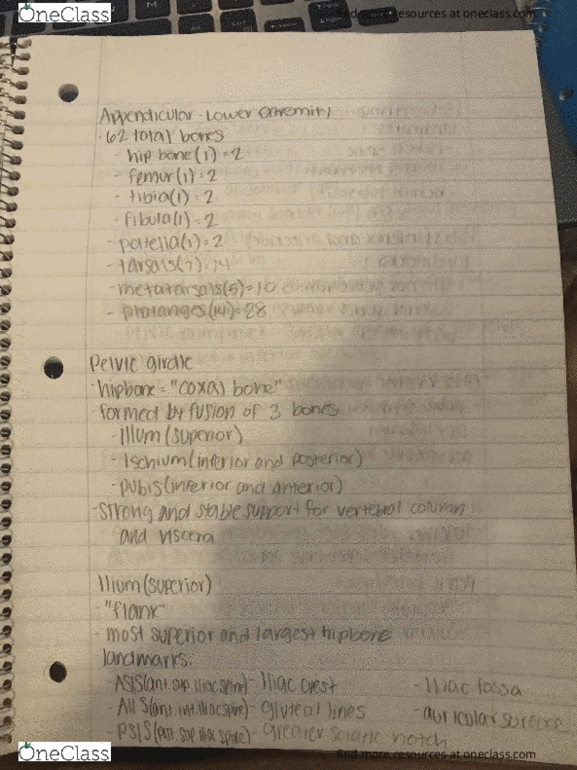 OneClass
find more resources at oneclass.com
Appendicular - Lower extremity
- 62 total bones
- hip bone (1) = 2
- femur (1) = 2
- tibia (1) = 2
- fibula (1) = 2
- patella (1) = 2
- tarsals (7) = 14
- metatarsals (5) = 10
- phalanges (14) = 28
Pelvic girdle
- hipbone = "coxal bone"
- formed by fusion of 3 bones
- Illum (superior)
- Ischium (inferior and posterior)
- pubis (inferior and anterior)
- Strong and stable support for vertebral column
and viscera
Ilium (superior)
- "flank"
- most superior and largest hipbone
landmarks:
- ASIS (ant. sup. iliac spine) - Iliac crest - Iliac fossa
- AIIS (ant. inf. iliac spine) - gluteal lines - auricular surface
- PSIS (post. sup. iliac spine) - greater sciatic notch
OneClass
find more resources at oneclass.com